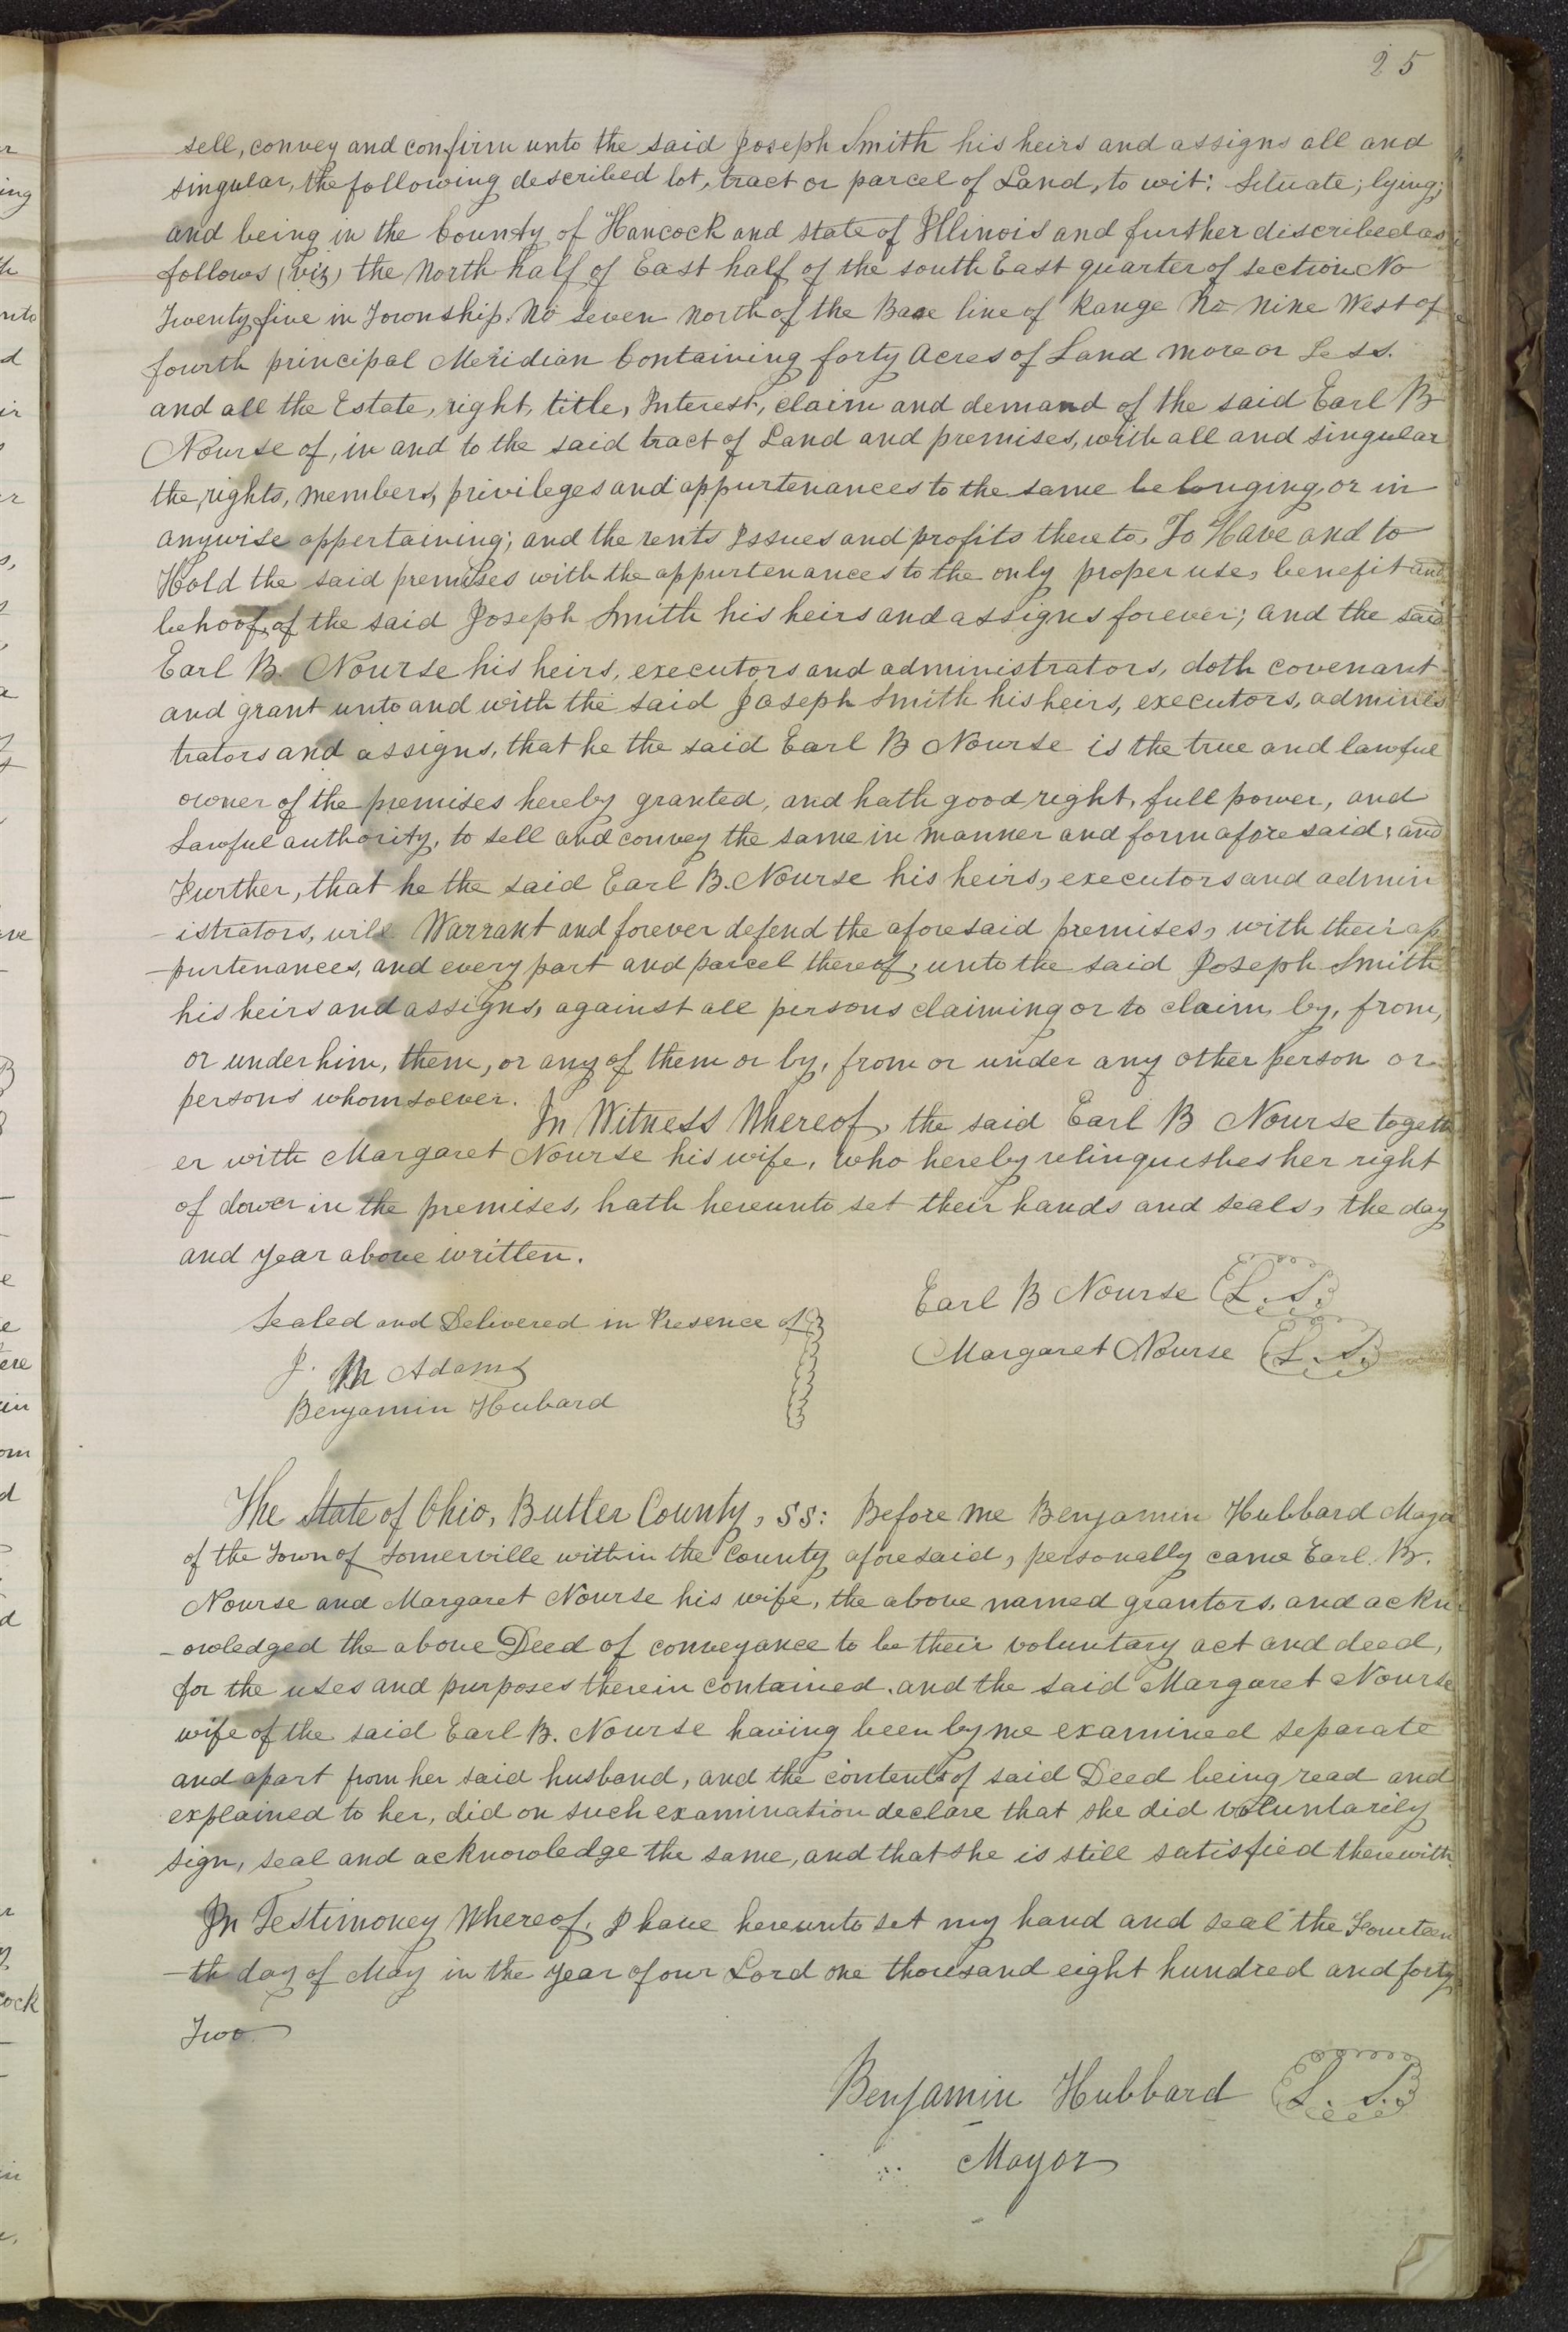 25
sell, convey and confirm unto the said Joseph Smith his heirs and assigns all and
singular, the following described lot, tract or parcel of Land, to wit: Situate; lying;
and being in the County of Hancock and state of Illinois and further discribed as
follows (viz) the North half of East half of the south East quarter of section No
Twenty five in Township No Seven North of the Base line of Range No Nine West of
fourth principal Meridian Containing forty Acres of Land more or Less.
and all the Estate, right, title, Interest, claim and demand of the said Earl B
Nourse of, in and to the said tract of Land and premises, with all and singular
the rights, members, privileges and appurtenances to the same belonging, or in
anywise appertaining; and the rents Issues and profits thereto, To Have and to
Hold the said premises with the appurtenances to the only proper use, benefit and
behoof, of the said Joseph Smith his heirs and assigns forever; and the said
Earl B. Nourse his heirs, executors and administrators, doth covenant
and grant unto and with the said Joseph Smith his heirs, executors, adminis
trators and assigns, that he the said Earl B Nourse is the true and lawful
owner of the premises hereby granted, and hath good right, full power, and
Lawful authority, to sell and convey the same in manner and form aforesaid; and
Further, that he the said Earl B. Nourse his heirs, executors and admin
- istrators, will Warrant and forever defend the aforesaid premises, with their ap
- purtenances, and every part and parcel thereof, unto the said Joseph Smith
his heirs and assigns, against all persons claiming or to claim, by, from,
or under him, them, or any of them or by, from or under any other person or
persons whomsoever.
In Witness Whereof, the said Earl B Nourse togeth
er with Margaret Nourse his wife, who hereby relinquishes her right
of dower in the premises, hath hereunto set their hands and seals, the day
and year above written.
Earl B Nourse L. S.
Sealed and Delivered in Presence of
Margaret Nourse L. S.
J. M Adams
Benjamin Hubard
The State of Ohio, Butler County, SS: Before me Benjamin Hubbard Mayor
of the Town of Somerville within the County aforesaid, personally came Earl B.
Nourse and Margaret Nourse his wife, the above named grantors, and ackn
- owledged the above Deed of conveyance to be their voluntary act and deed,
for the uses and purposes therein contained. and the said Margaret Nourse
wife of the said Earl B. Nourse having been by me examined separate
and apart from her said husband, and the contents of said Deed being read and
explained to her, did on such examination declare that she did voluntarily
sign, seal and acknowledge the same, and that she is still satisfied therewith.
In Testimoney Whereof, I have hereunto set my hand and seal the Fourteen
- th day of May in the year of our Lord one thousand eight hundred and forty
Two.
Benjamin Hubbard L. S.
Mayor